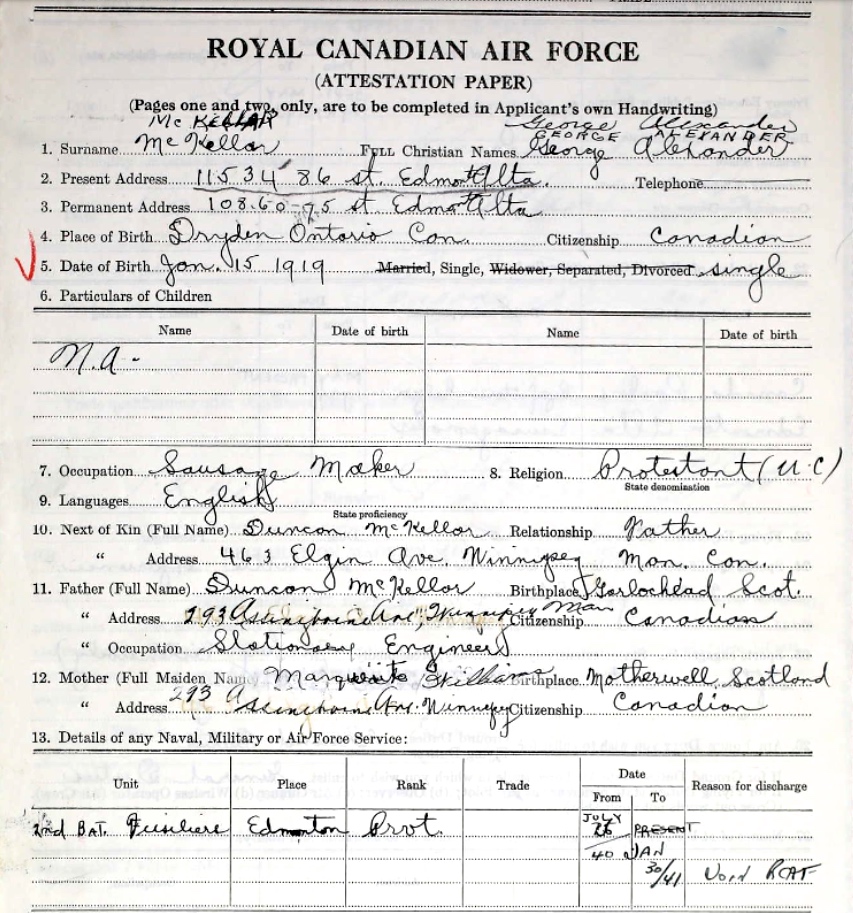 ROYAL CANADIAN AIR FORCE
(ATTESTATION PAPER)
(Pages one and two, only, are to be completed in Applicant's own Handwriting)
Mc Kellar George Alexander
GEORGE ALEXANDER
1. Surname McKellar FULL Christian Names George Alexander
2. Present Address 11534 86 st. Edmon Alta. Telephone
3. Permanent Address 10860-75 st Edmon Alta
4. Place of Birth Dryden Ontario Can. Citizenship Canadian
5. Date of Birth Jan. 15 1919 Married, Single, Widower, Separated, Divorced single
6. Particulars of Children
Name Date of birth Name Date of birth
N.A-
7. Occupation Sausage Maker 8. Religion Protestant (U.C)
State denomination
9. Languages English
State proficiency
10. Next of Kin (Full Name) Duncan McKellar Relationship Father
" Address 463 Elgin Ave. Winnipeg Man. Can.
11. Father (Full Name) Duncan McKellar Birthplace Scot.
" Address 293 Assiniboine Ave, Winnipeg Man Citizenship Canadian
" Occupation Stationary Engineer
12. Mother (Full Maiden Name) Williams Birthplace Motherwell Scotland
" Address 293 Assiniboine Ave. Winnipeg Citizenship Canadian
13. Details of any Naval, Military or Air Force Service:
Unit Place Rank Trade Date Reason for discharge
From To
2nd BAT. Fusiliers Edmonton Prvt. JULY 26 PRESENT
40 JAN
30/41 Join RCAF